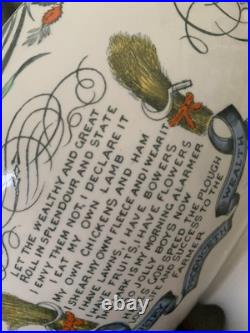 LET THE WEALTHY AND GREAT
ROLL IN SPLENDOUR AND STATE
I ENVY THEM NOT, I DECLARE IT
I EAT MY OWN LAMB
MY OWN CHICKENS AND HAM
I SHEAR MY OWN FLEECE AND I WEAR IT
I HAVE LAWNS, I HAVE BOWERS
I HAVE FRUITS, I HAVE FLOWERS
THE LARK IS MY MORNING ALARMER
JOLLY BOYS NOW
GOD SPEED THE PLOUGH
SUCCESS TO THE
WEALTH